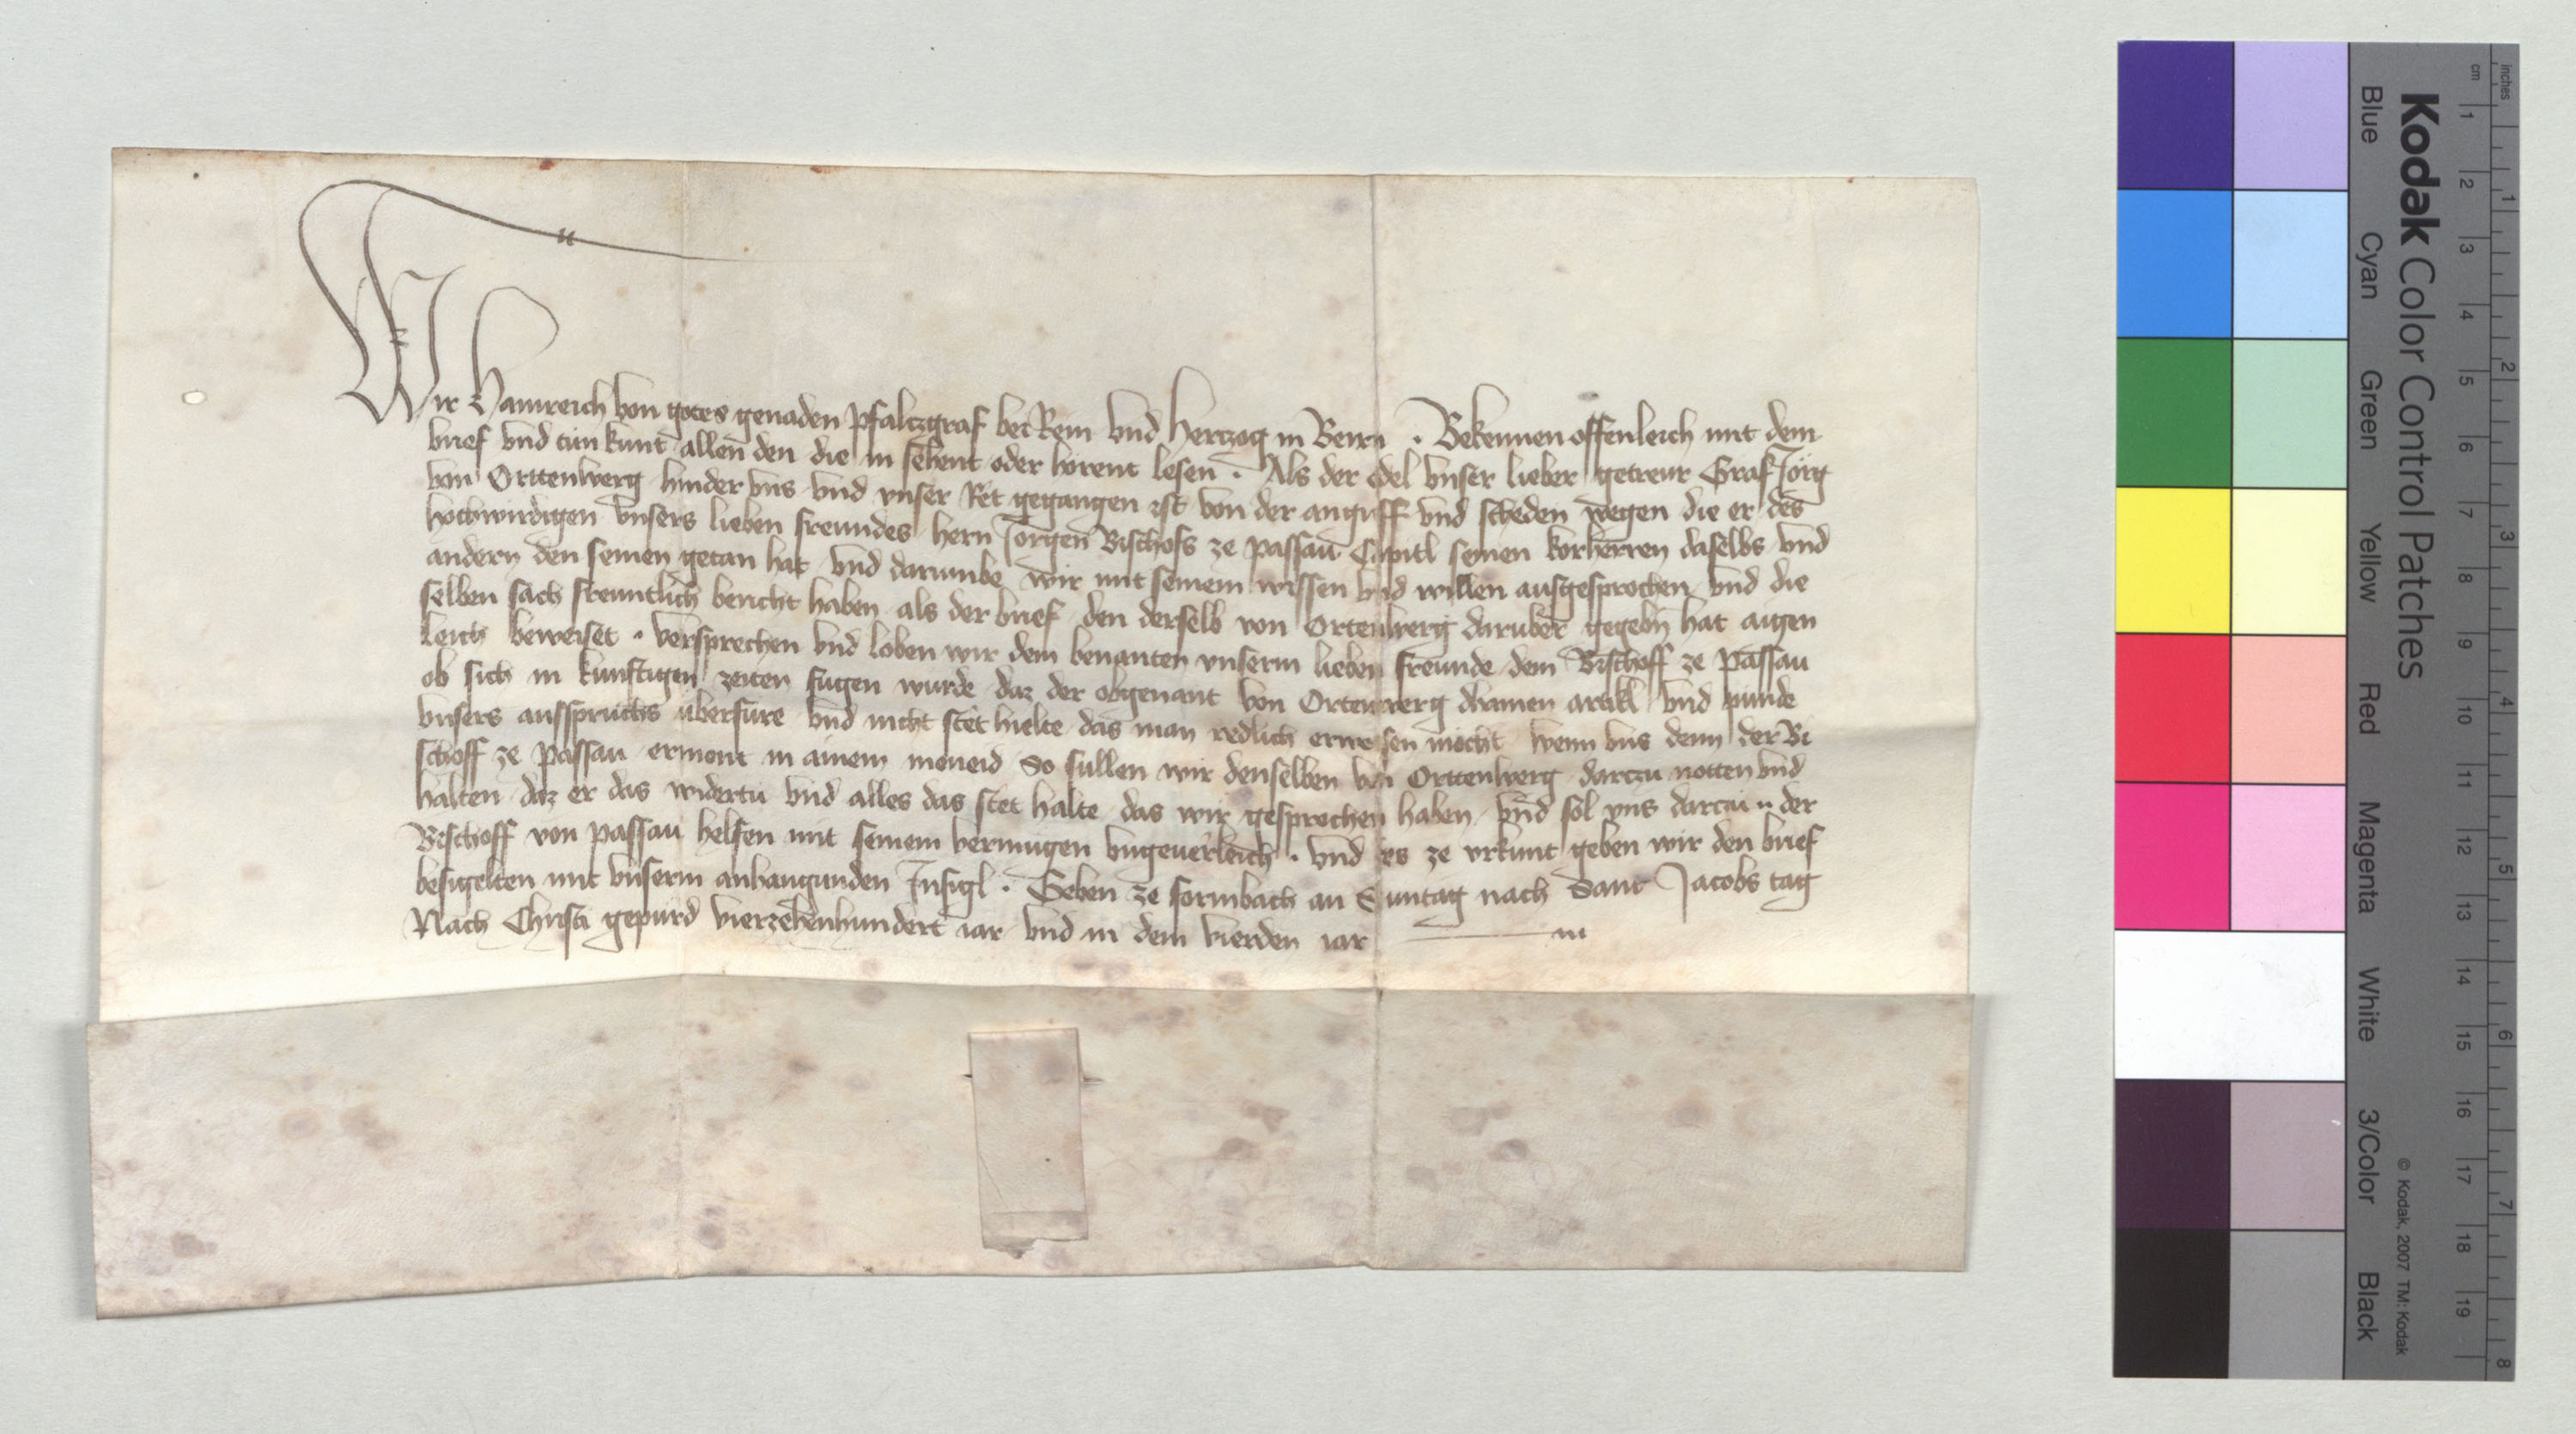 Wir Hainreich von gotes genaden Pfaltzgraf bei Rein vnd Hertzog in Beirn · Bekennen offenleich mit dem
brief vnd tun kunt allen den die in sehent oder hörent lesen · Als der edel vnser lieber getrewr Graf Jörg
von Orttenberg hinder vns vnd vnser Ret gegangen ist von der angriff vnd scheden wegen die er des
hochwirdigen vnsers lieben freundes hern Jörgen Bischofs ze Passau Capitl seinen korherren daselbs vnd
andern den seinen getan hat vnd darumbe wir mit seinem wissen vnd willen ausgesprochen vnd die
selben sach freuntlich bericht haben als der brief den derselb von Ortenberg daruber gegebn hat aigen
leich beweiset · versprechen vnd loben wir dem benanten vnserm lieben freunde dem Bischoff ze Passau
ob sich in kunftigen zeiten fugen wurde daz der obgenant von Ortenberg dhainen artikl vnd punde
vnsers ausspruchs uberfüre vnd nicht stet hielte das man redlich erweisen möcht wenn vns denn der Bi
schoff ze Passau ermont in ainem moneid So sullen wir denselben von Orttenberg darczu notten vnd
halten daz er das widertu vnd alles das stet halte das wir gesprochen haben vnd sol vns darczu der
Bischoff von Passau helfen mit seinem vermugen vngeuerleich · vnd des ze vrkunt geben wir den brief
besigelten mit vnserm anhangunden Insigl · Geben ze Formbach an Suntag nach Sant Jacobs tag
Nach Christi gepurd vierzehenhundert iar vnd in dem vierden iar
Kodak Color Control Patches
Blue Cyan Green Yellow Red Magenta White 3/Color Black
© Kodak, 2007 TM: Kodak
cm 1 2 3 4 5 6 7 8 9 10 11 12 13 14 15 16 17 18 19
inches 1 2 3 4 5 6 7 8